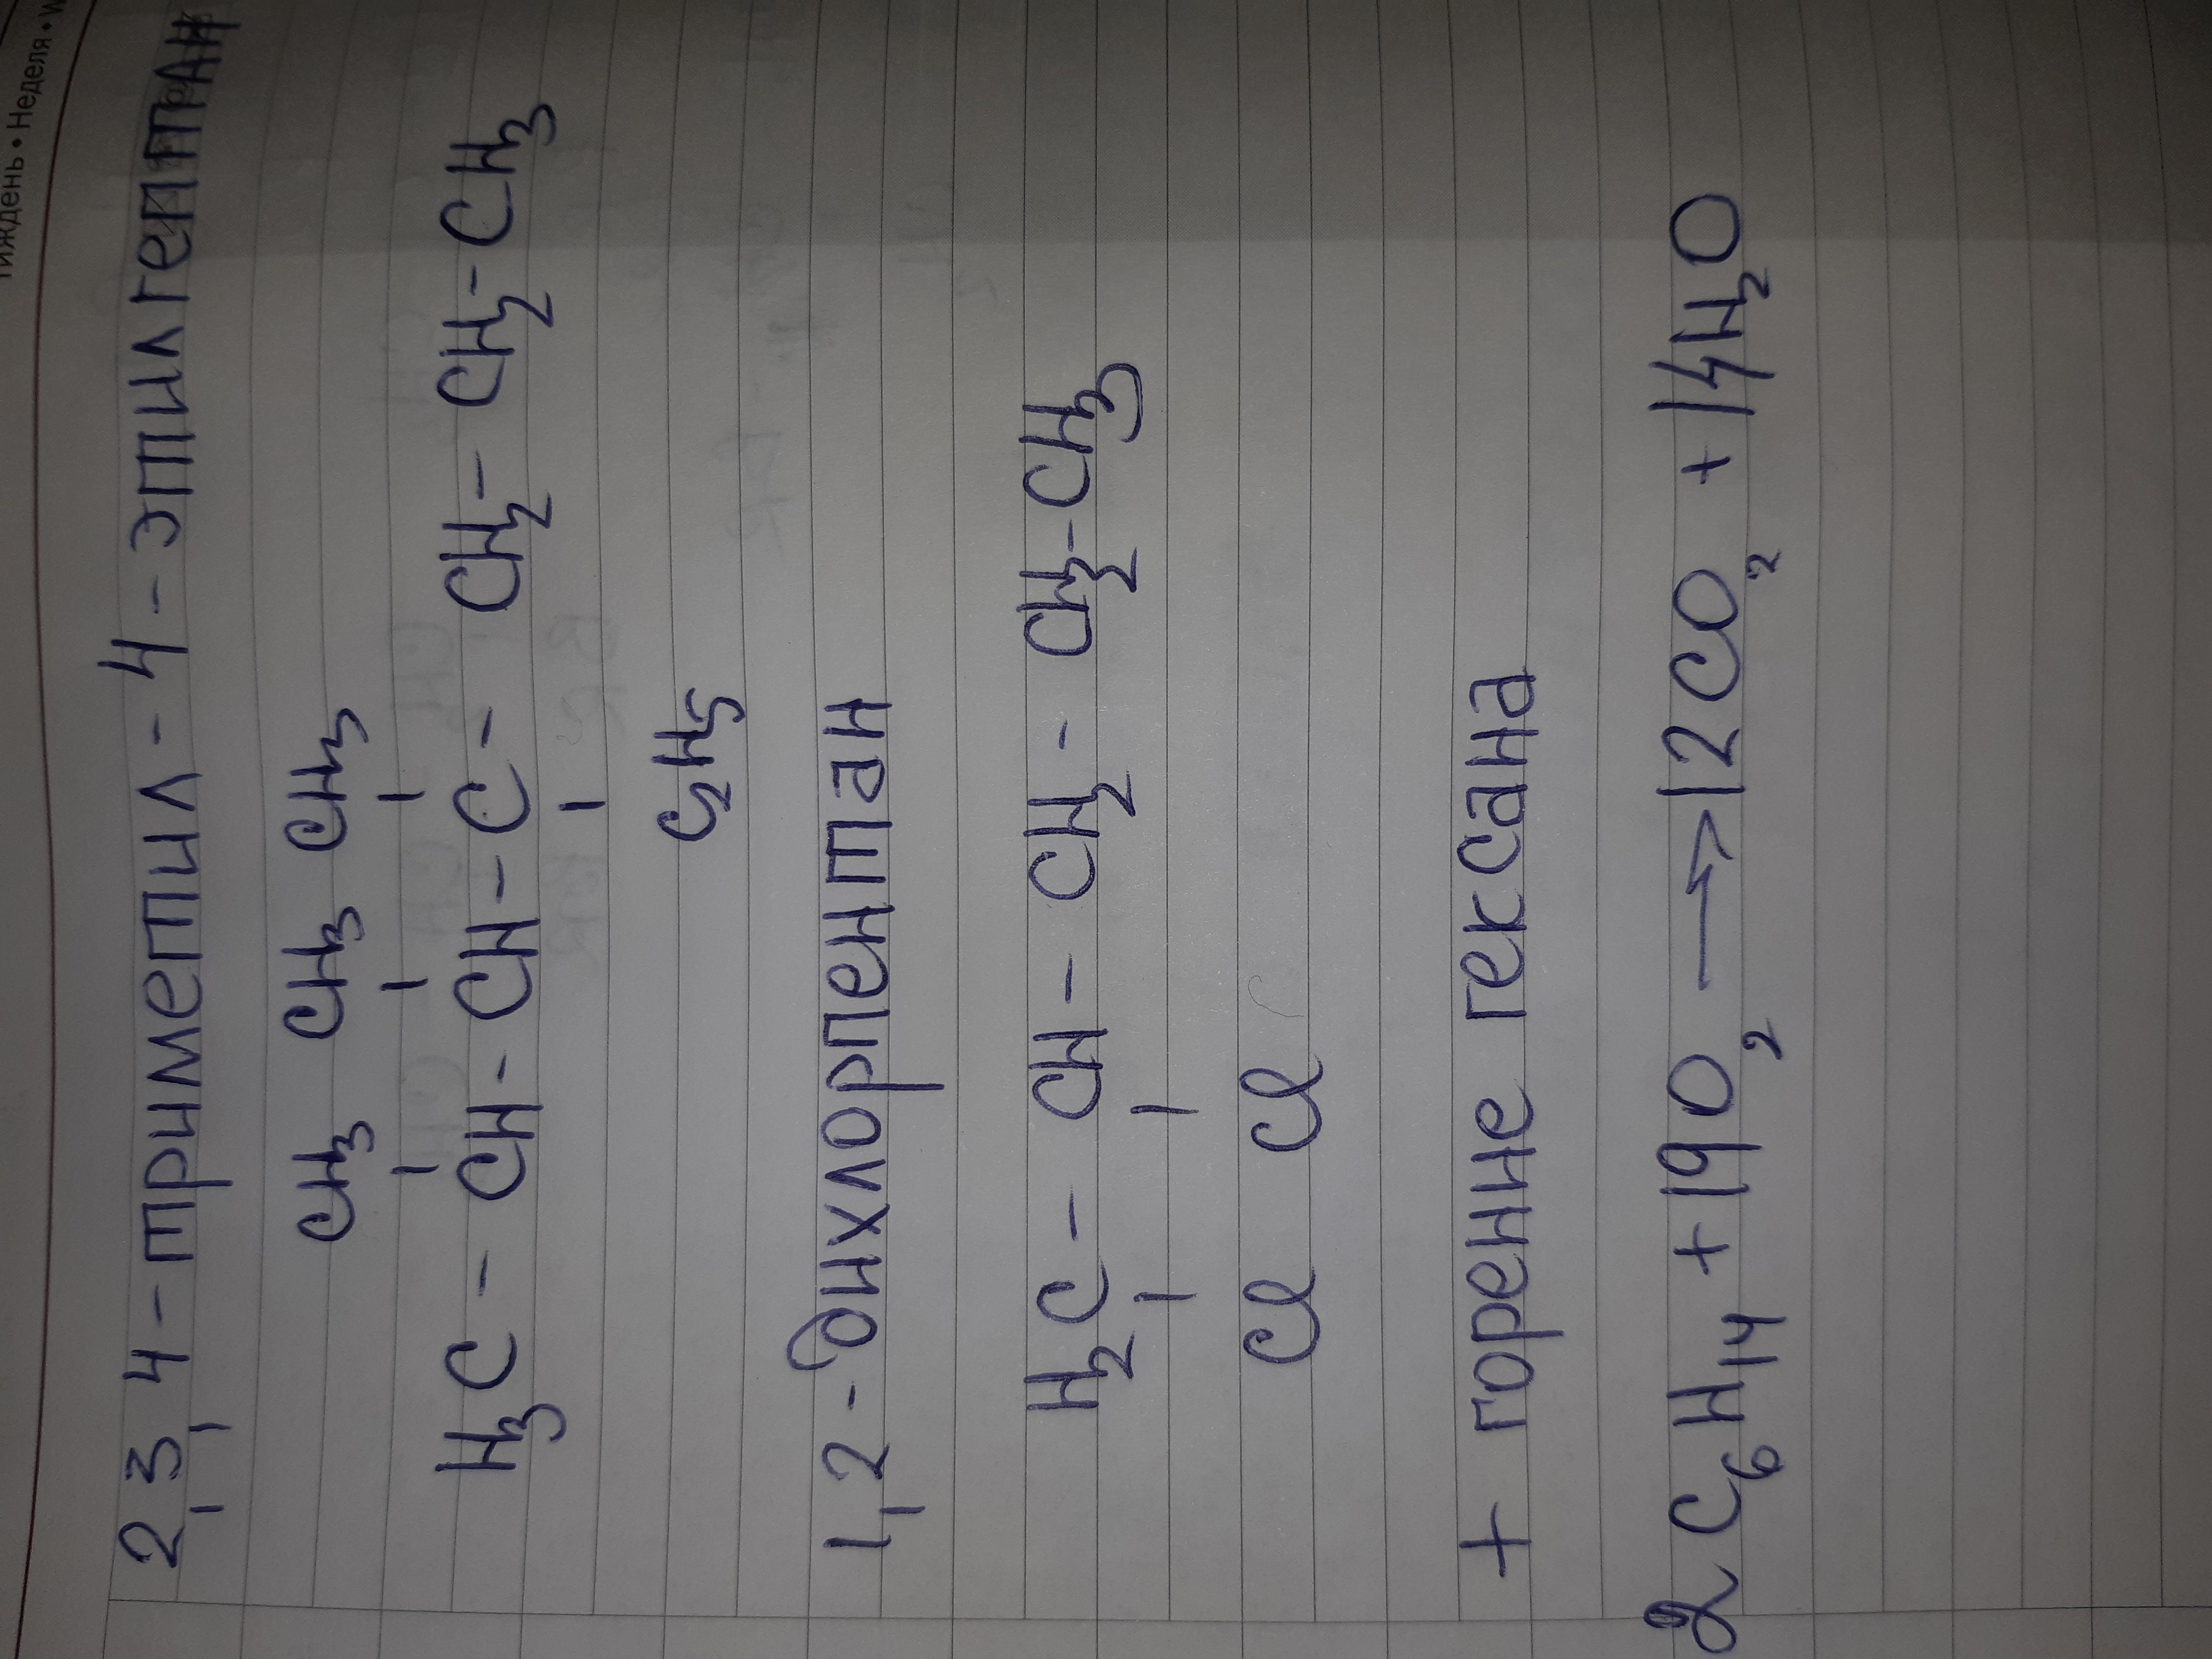 тиждень • Неделя • W
2,3,4-триметил-4-этилгептан
CH3 CH3 CH3
H3C-CH-CH-C-CH2-CH2-CH3
C2H5
1,2-дихлорпентан
H2C-CH-CH2-CH2-CH3
Cl Cl
+ горение гексана
2C6H14 + 19O2 → 12CO2 + 14H2O